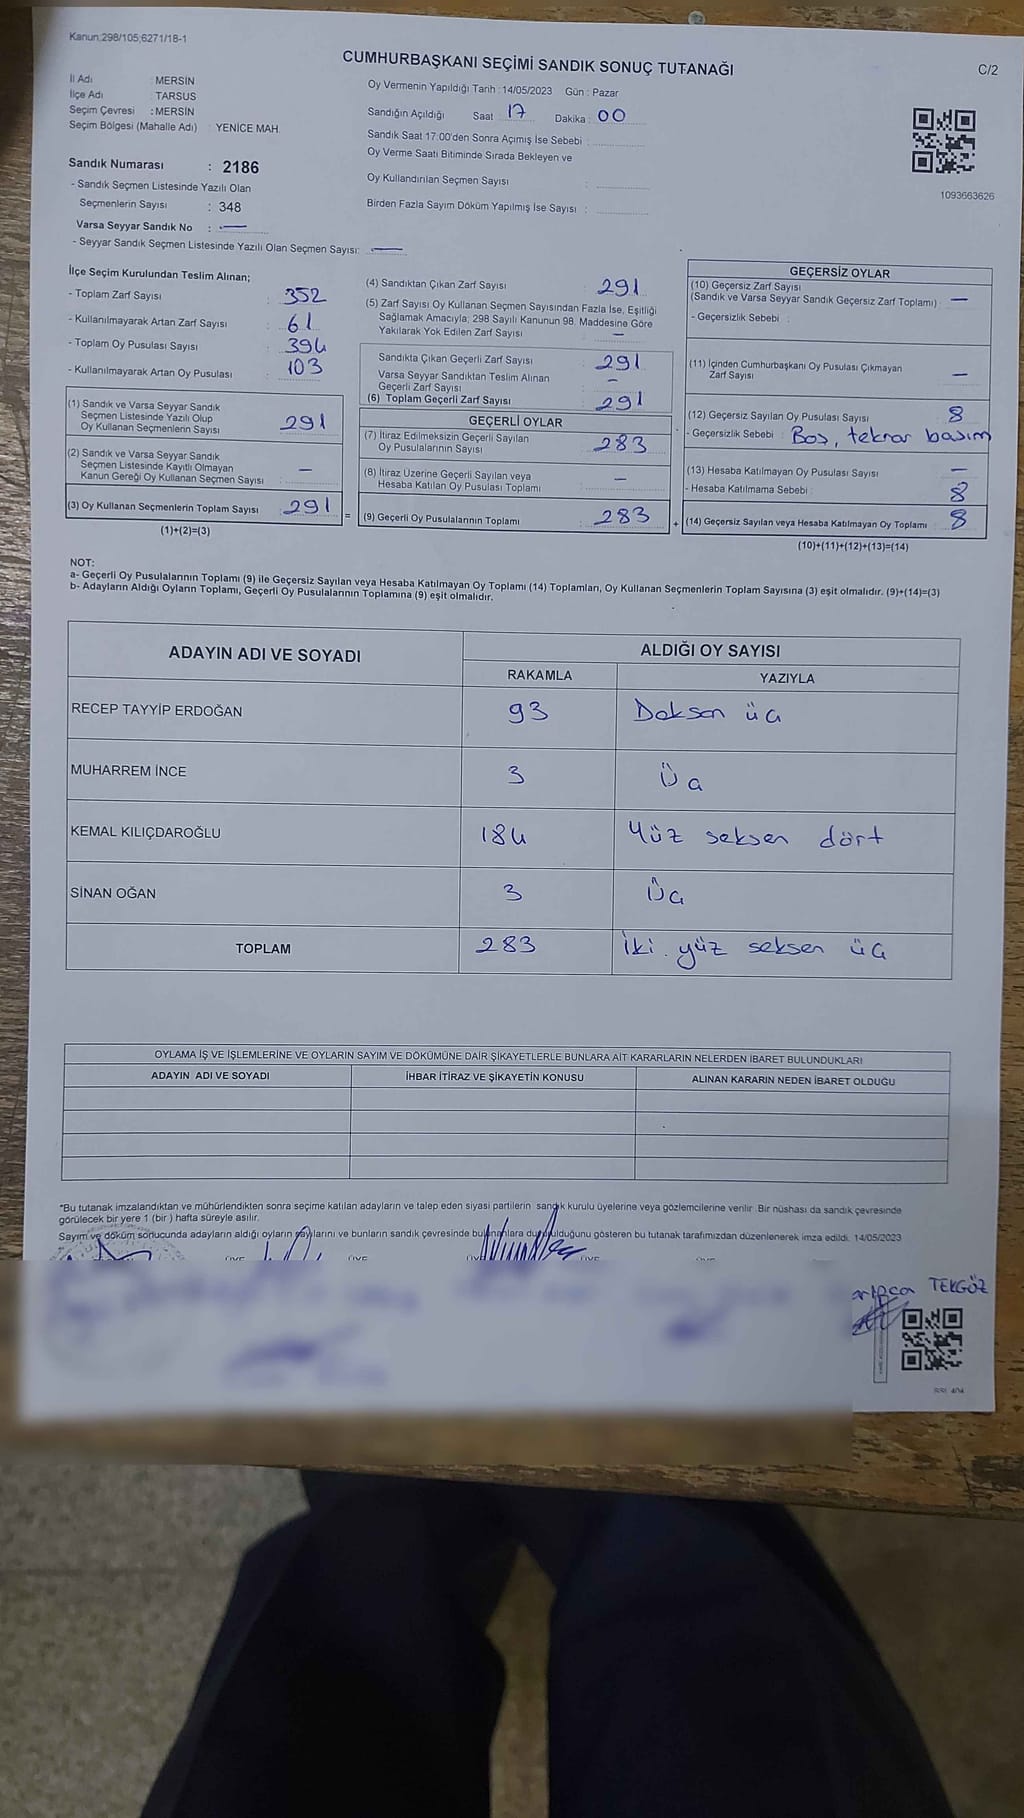 Kanun:298/105;6271/18-1
CUMHURBAŞKANI SEÇİMİ SANDIK SONUÇ TUTANAĞI
C/2
İl Adı : MERSİN
İlçe Adı : TARSUS
Seçim Çevresi : MERSİN
Seçim Bölgesi (Mahalle Adı) : YENİCE MAH.
Oy Vermenin Yapıldığı Tarih : 14/05/2023 Gün : Pazar
Sandığın Açıldığı Saat 17 Dakika : 00
Sandık Saat 17:00'den Sonra Açımış İse Sebebi :
Oy Verme Saati Bitiminde Sırada Bekleyen ve
Oy Kullandırılan Seçmen Sayısı :
Birden Fazla Sayım Döküm Yapılmış İse Sayısı :
1093663626
Sandık Numarası : 2186
- Sandık Seçmen Listesinde Yazılı Olan
Seçmenlerin Sayısı : 348
Varsa Seyyar Sandık No : —
- Seyyar Sandık Seçmen Listesinde Yazılı Olan Seçmen Sayısı: —
İlçe Seçim Kurulundan Teslim Alınan;
- Toplam Zarf Sayısı : 352
- Kullanılmayarak Artan Zarf Sayısı : 61
- Toplam Oy Pusulası Sayısı : 394
- Kullanılmayarak Artan Oy Pusulası : 103
(1) Sandık ve Varsa Seyyar Sandık
Seçmen Listesinde Yazılı Olup
Oy Kullanan Seçmenlerin Sayısı : 291
(2) Sandık ve Varsa Seyyar Sandık
Seçmen Listesinde Kayıtlı Olmayan
Kanun Gereği Oy Kullanan Seçmen Sayısı : —
(3) Oy Kullanan Seçmenlerin Toplam Sayısı : 291
(1)+(2)=(3)
(4) Sandıktan Çıkan Zarf Sayısı : 291
(5) Zarf Sayısı Oy Kullanan Seçmen Sayısından Fazla İse, Eşitliği
Sağlamak Amacıyla, 298 Sayılı Kanunun 98. Maddesine Göre
Yakılarak Yok Edilen Zarf Sayısı : —
Sandıkta Çıkan Geçerli Zarf Sayısı : 291
Varsa Seyyar Sandıktan Teslim Alınan
Geçerli Zarf Sayısı : —
(6) Toplam Geçerli Zarf Sayısı : 291
GEÇERLİ OYLAR
(7) İtiraz Edilmeksizin Geçerli Sayılan
Oy Pusulalarının Sayısı : 283
(8) İtiraz Üzerine Geçerli Sayılan veya
Hesaba Katılan Oy Pusulası Toplamı : —
= (9) Geçerli Oy Pusulalarının Toplamı : 283 +
GEÇERSİZ OYLAR
(10) Geçersiz Zarf Sayısı
(Sandık ve Varsa Seyyar Sandık Geçersiz Zarf Toplamı) : —
- Geçersizlik Sebebi :
(11) İçinden Cumhurbaşkanı Oy Pusulası Çıkmayan
Zarf Sayısı : —
(12) Geçersiz Sayılan Oy Pusulası Sayısı : 8
- Geçersizlik Sebebi : Boş, tekrar basım
(13) Hesaba Katılmayan Oy Pusulası Sayısı : —
- Hesaba Katılmama Sebebi : 8
(14) Geçersiz Sayılan veya Hesaba Katılmayan Oy Toplamı : 8
(10)+(11)+(12)+(13)=(14)
NOT:
a- Geçerli Oy Pusulalarının Toplamı (9) ile Geçersiz Sayılan veya Hesaba Katılmayan Oy Toplamı (14) Toplamları, Oy Kullanan Seçmenlerin Toplam Sayısına (3) eşit olmalıdır. (9)+(14)=(3)
b- Adayların Aldığı Oyların Toplamı, Geçerli Oy Pusulalarının Toplamına (9) eşit olmalıdır.
ADAYIN ADI VE SOYADI ALDIĞI OY SAYISI
RAKAMLA YAZIYLA
RECEP TAYYİP ERDOĞAN 93 Doksan üç
MUHARREM İNCE 3 Üç
KEMAL KILIÇDAROĞLU 184 Yüz seksen dört
SİNAN OĞAN 3 Üç
TOPLAM 283 İki yüz seksen üç
OYLAMA İŞ VE İŞLEMLERİNE VE OYLARIN SAYIM VE DÖKÜMÜNE DAİR ŞİKAYETLERLE BUNLARA AİT KARARLARIN NELERDEN İBARET BULUNDUKLARI
ADAYIN ADI VE SOYADI İHBAR İTİRAZ VE ŞİKAYETİN KONUSU ALINAN KARARIN NEDEN İBARET OLDUĞU
*Bu tutanak imzalandıktan ve mühürlendikten sonra seçime katılan adayların ve talep eden siyasi partilerin sandık kurulu üyelerine veya gözlemcilerine verilir. Bir nüshası da sandık çevresinde
görülecek bir yere 1 (bir ) hafta süreyle asılır.
Sayım ve döküm sonucunda adayların aldığı oyların sayılarını ve bunların sandık çevresinde bulunanlara duyulduğunu gösteren bu tutanak tarafımızdan düzenlenerek imza edildi. 14/05/2023
ÜYE ÜYE ÜYE ÜYE
TEKGÖZ